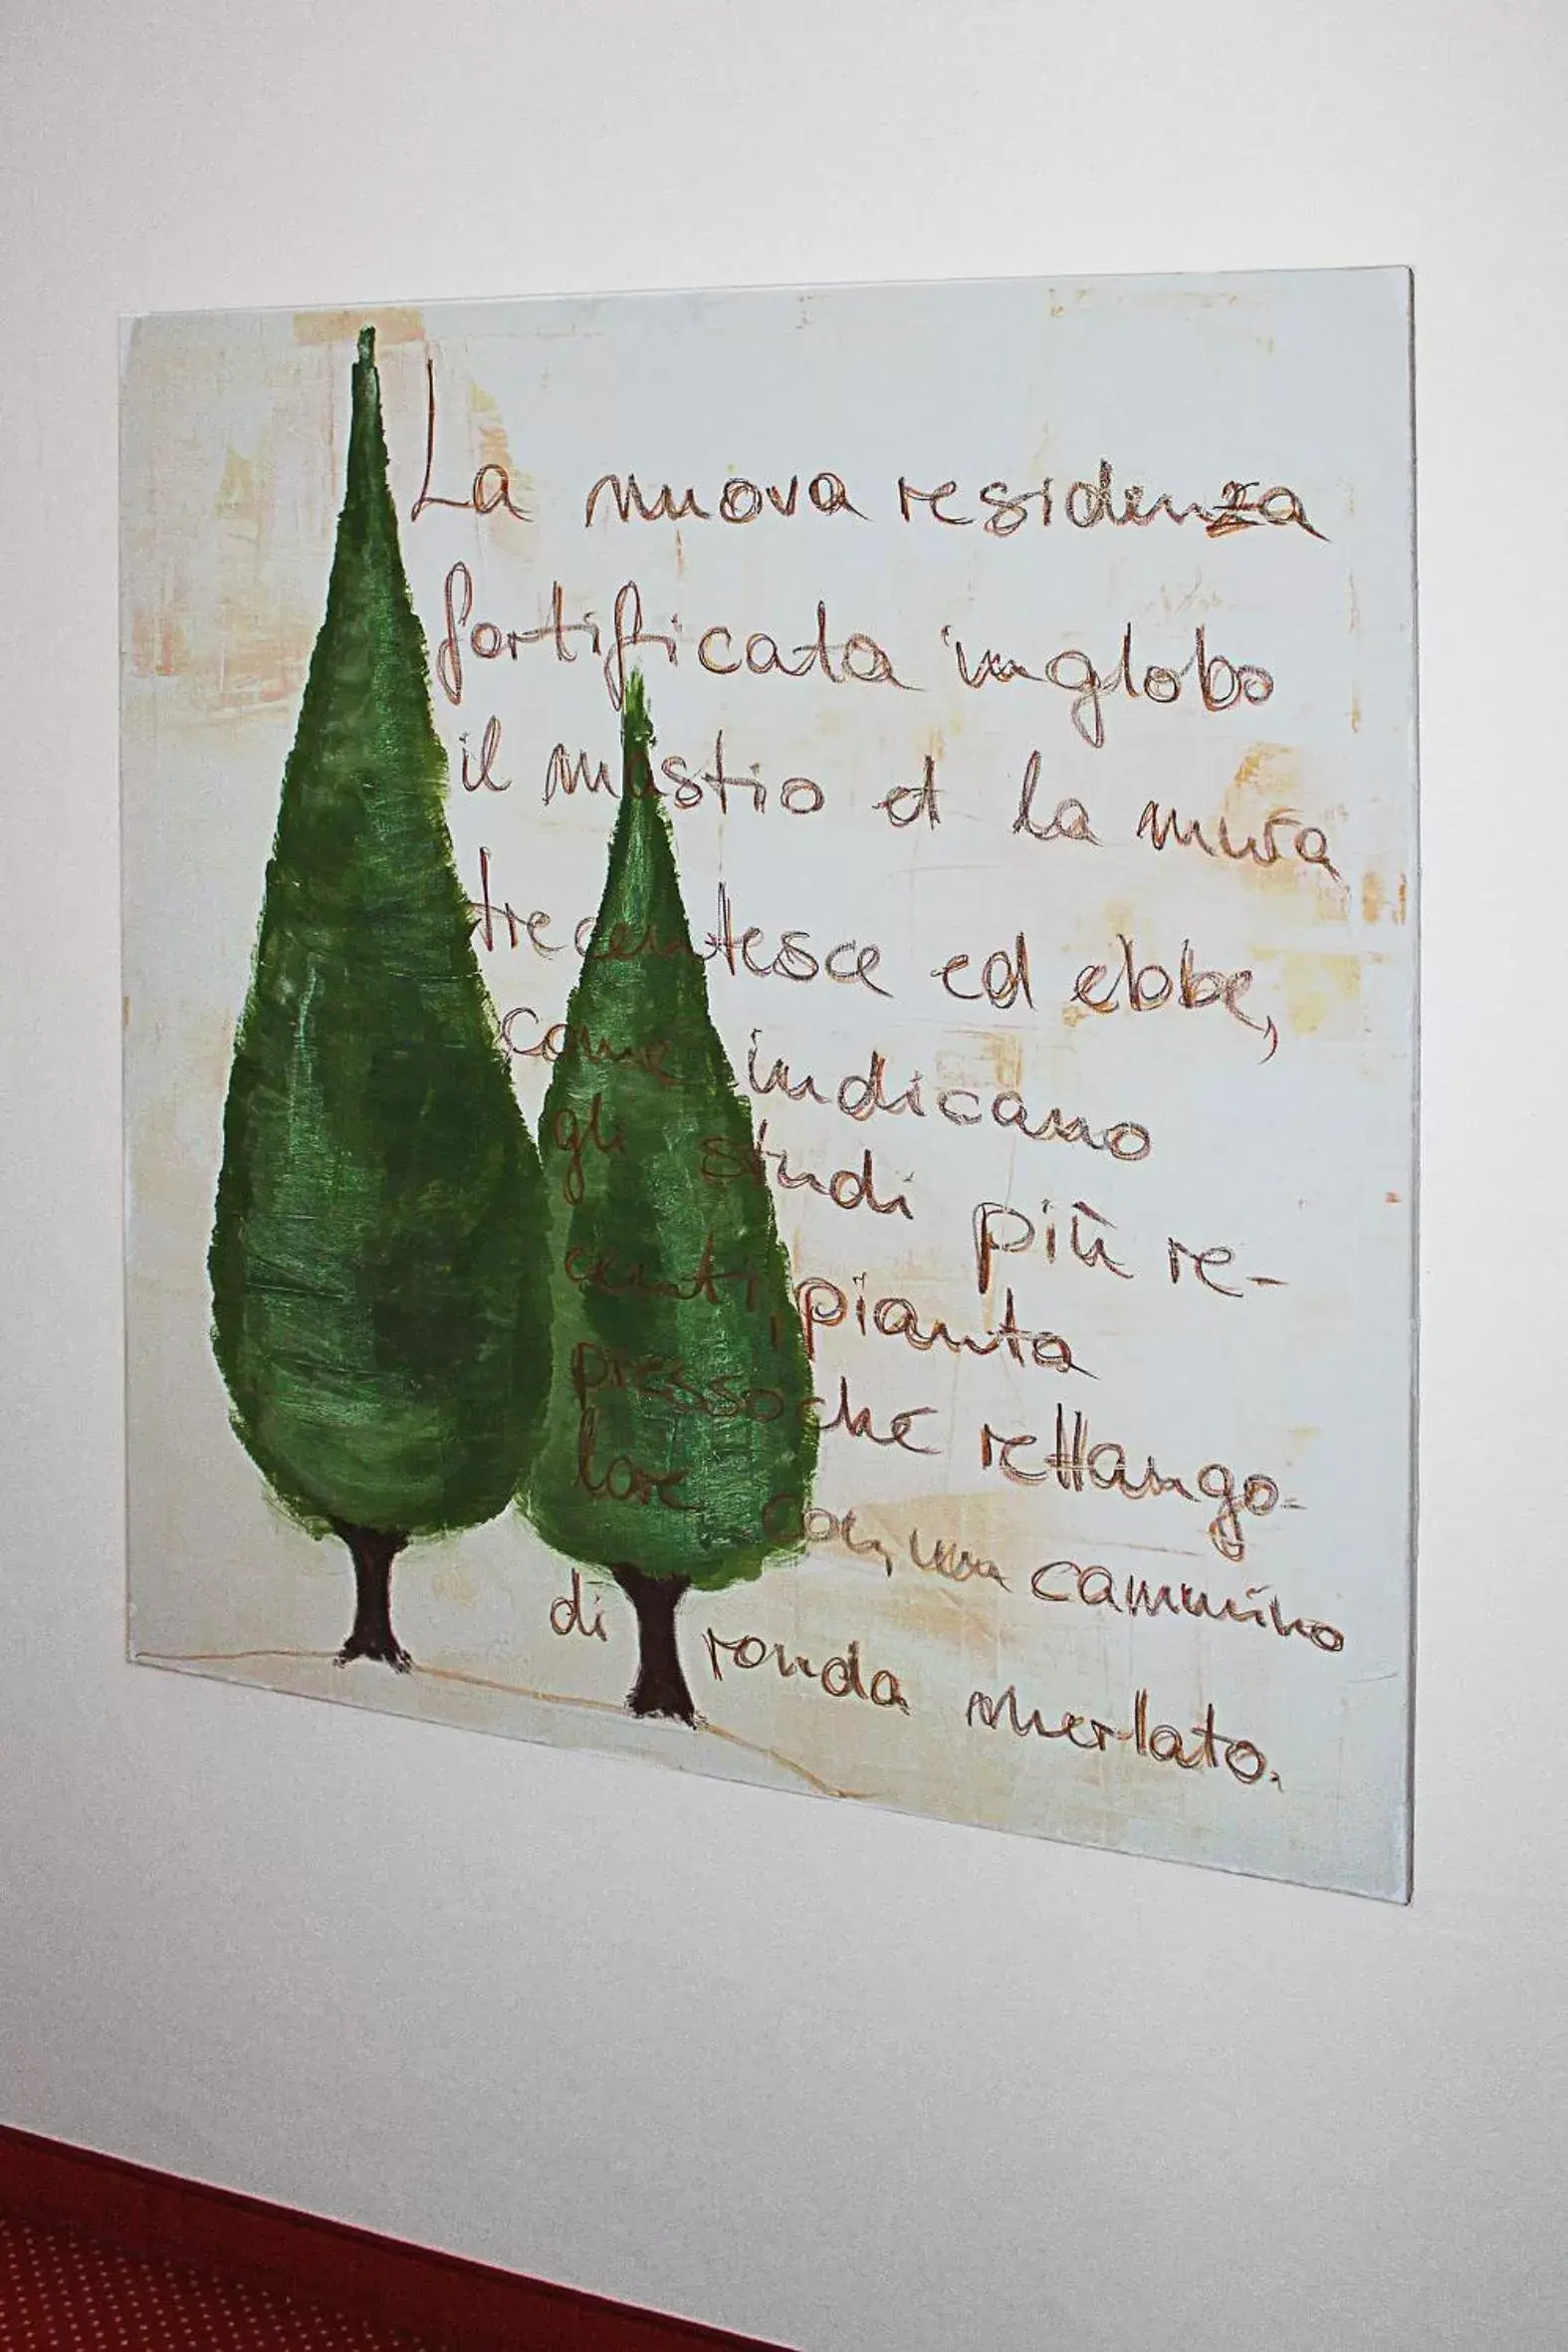 La nuova residenza
fortificata inglobo
il mastio et la mura
trecentesce ed ebbe,
come indicano
gli studi più re-
centi, pianta
pressoché rettango-
lare con una cammino
di ronda merlato.